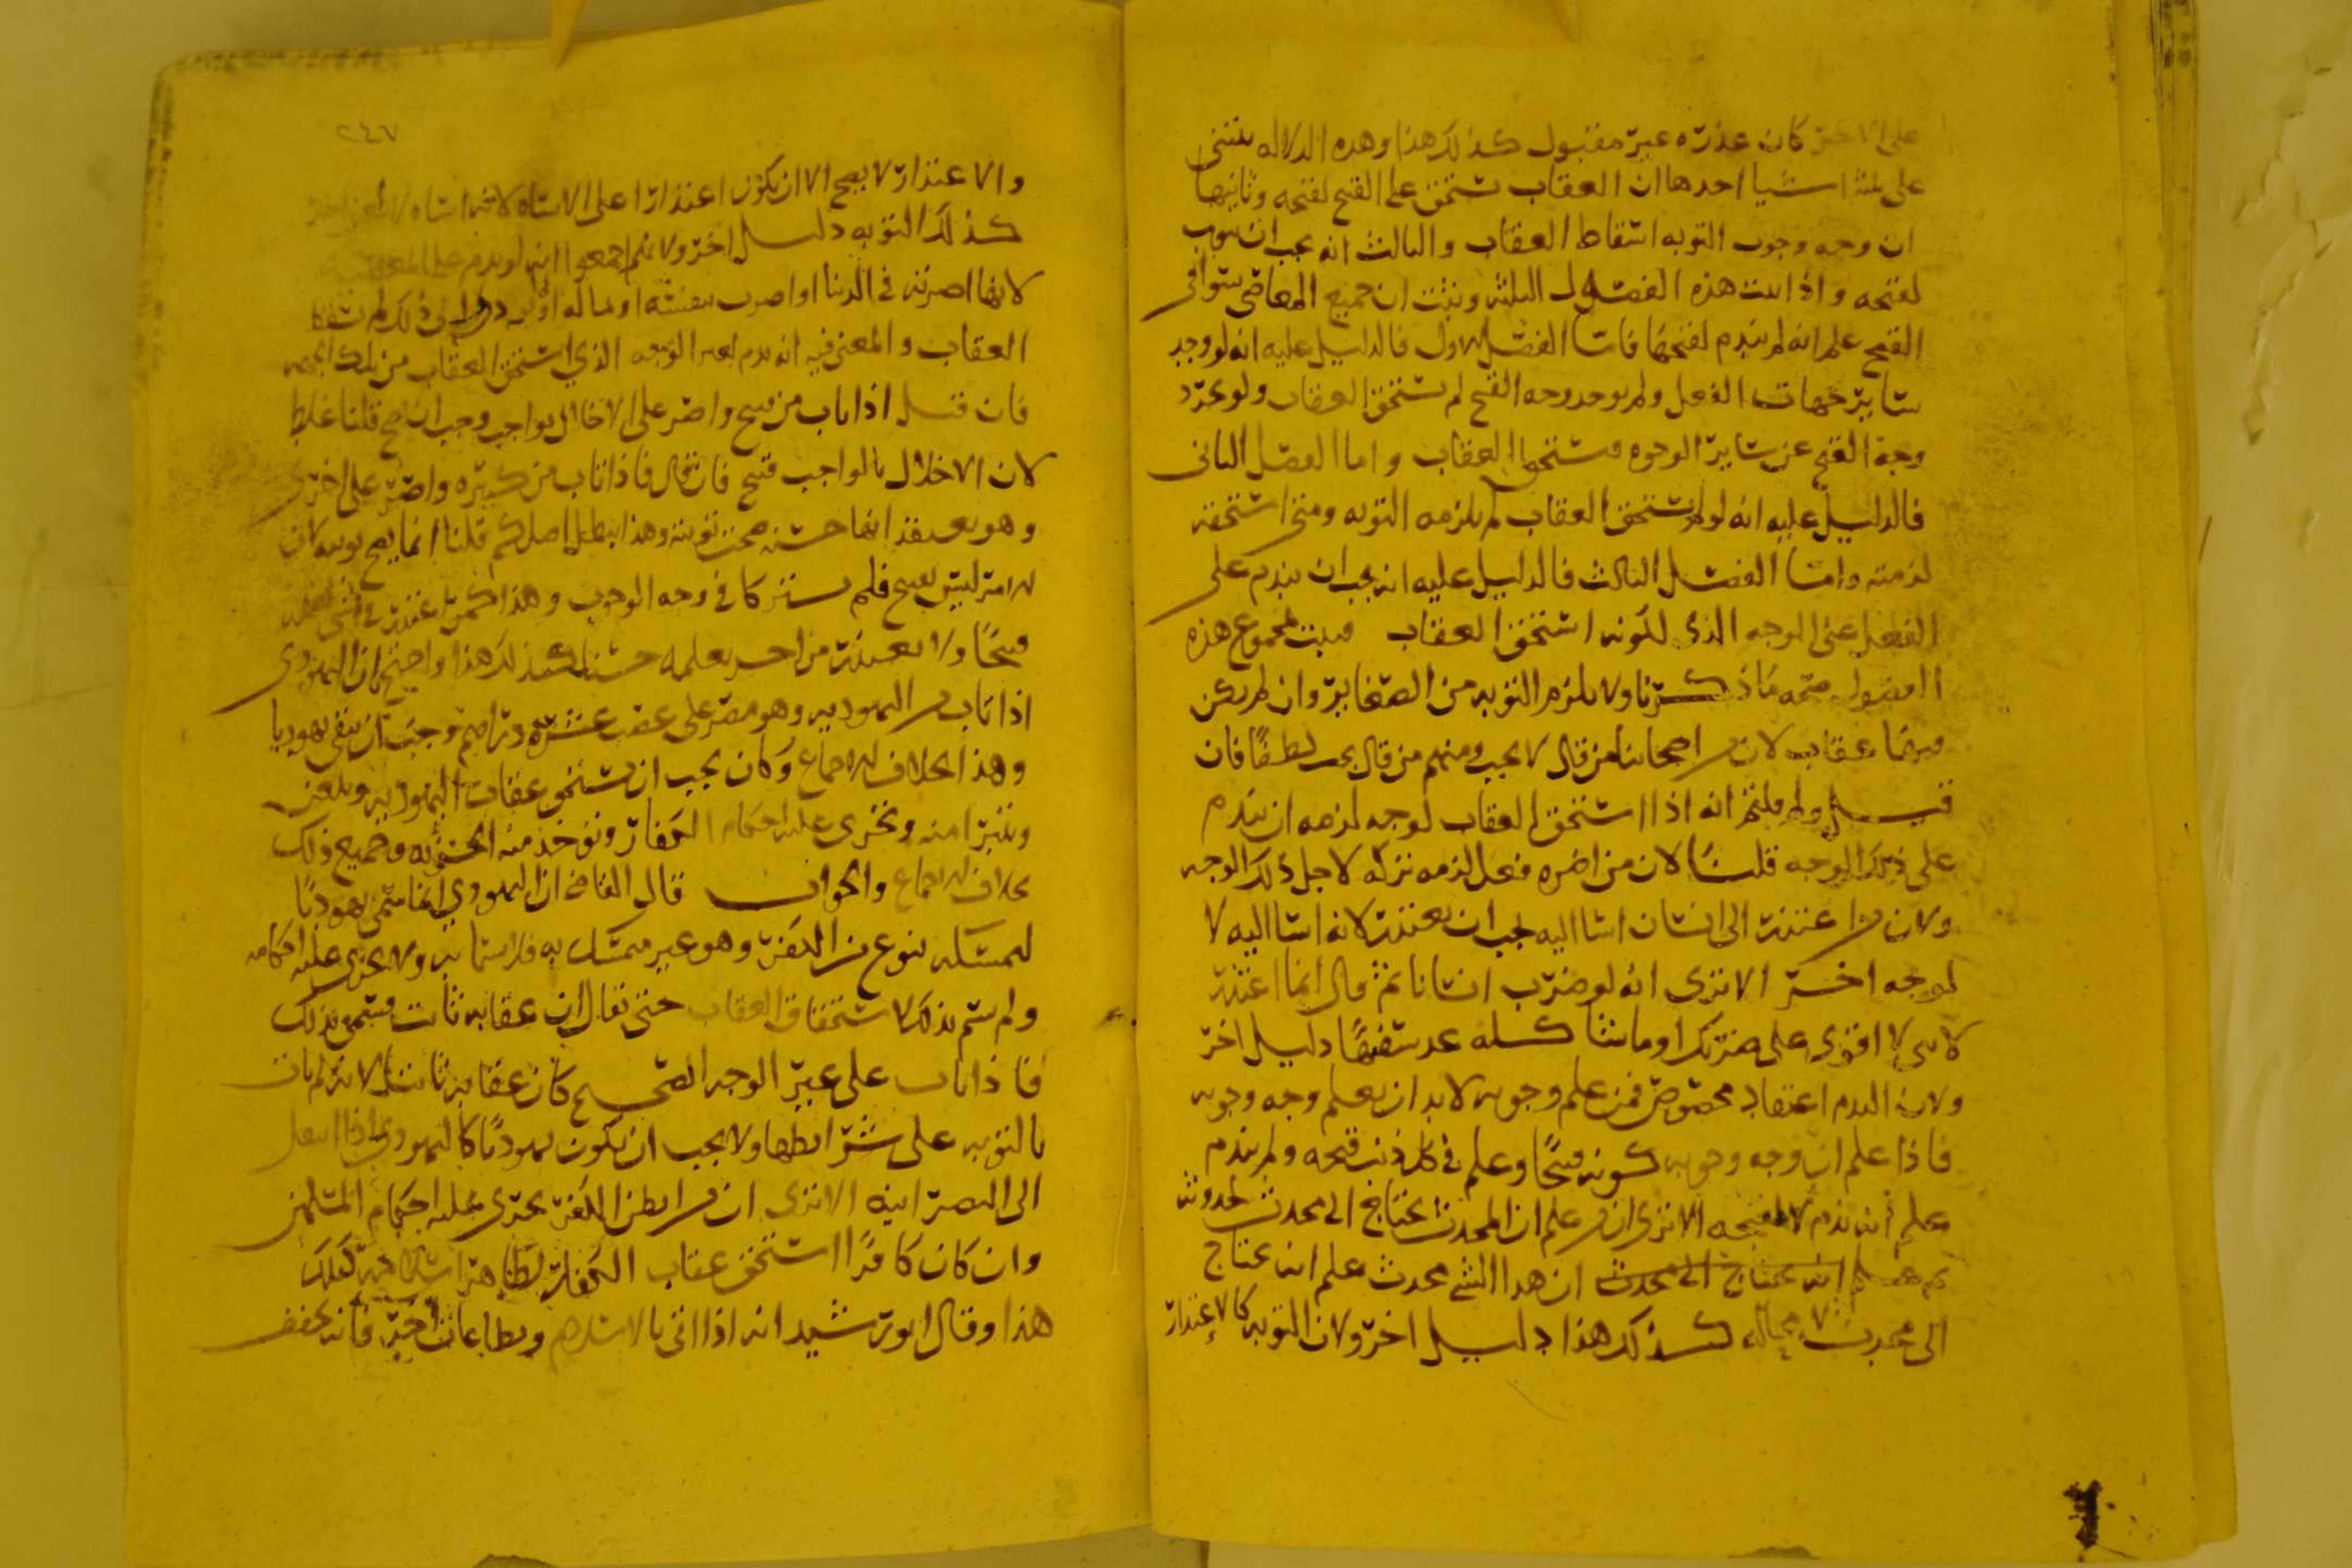 على الاخر كان عذره غير مقبول كذلك هذا وهذه الدلاله تبتنى
على ثلثه اشيا احدها ان العقاب يستحق على القبح لقبحه وثانيها
ان وجه وجوب التوبه اسقاط العقاب والثالث انه يجب ان يتوب
لقبحه واذا ثبت هذه الفصول الثلثه وثبت ان جميع المعاصى تتوافى
القبح علم انه لم يندم لقبحها فاما الفصل الاول فالدليل عليه انه لو وجد
سائر جهات الفعل ولم يوجد وجه القبح لم يستحق العقاب ولو تجرد
وجه القبح عن سائر الوجوه يستحق العقاب واما الفصل الثانى
فالدليل عليه انه لو لم يستحق العقاب لم يلزمه التوبه ومتى استحقه
لزمته واما الفصل الثالث فالدليل عليه انه يجب ان يندم على
الفعل على الوجه الذى لكونه استحق العقاب فثبت بمجموع هذه
الفصول صحه ما ذكرنا ولا يلزم التوبه من الصغاير وان لم يكن
فيها عقاب لان من اصحابنا من قال لا يجب ومنهم من قال يجب لطفا فان
قيل ولم قلتم انه اذا استحق العقاب لوجه لزمه ان يندم
على ذلك الوجه قلنا لان من اضره فعل لزمه تركه لاجل ذلك الوجه
ولان من اعتذر الى انسان اسا اليه يجب ان يعتذر لانه اسا اليه لا
لوجه اخر الا ترى انه لو ضرب انسانا ثم قال انما اعتذر
لانى لا اقوى على ضربك او ما شاكله عد سفيها دليل اخر
ولان الندم اعتقاد مخصوص فمن علم وجوبه لابد ان يعلم وجه وجوبه
فاذا علم ان وجه وجوبه كونه قبيحا وعلم فى كل ذنب قبحه ولم يندم
علم انه ندم لا لقبحه الا ترى ان من علم ان المحدث يحتاج الى محدث لحدوثه
ثم علم انه يحتاج الى محدث ان هذا الشى محدث علم انه يحتاج
الى محدث لا محاله كذلك هذا دليل اخر ولان التوبه كالاعتذار
٢٤٧
والاعتذار لا يصح الا ان يكون اعتذارا على الاساه لانها اساه لا لمعنى اخر
كذلك التوبه دليل اخر ولانهم اجمعوا انه لو ندم على المعصيه
لانها اضرته فى الدنيا او اضرت بنفسه او بماله او ولده الى ذلك لم تسقط
العقاب والمعنى فيه انه ندم لغير الوجه الذي استحق العقاب من تلك الجهه
فان قيل اذا تاب من قبيح واصر على الاخلال بواجب وجب ان يصح قلنا غلط
لان الاخلال بالواجب قبيح فان قال فاذا تاب من كبيره واصر على اخرى
وهو يعتقد انها حسنه صحت توبته وهذا يبطل اصلكم قلنا انما يصح توبته لان
لم يشتركا فى وجه الوجوب وهذا كمن اعتذر
قبيحا ولا يعتذر من اخر يعلمه حسنا كذلك هذا واحتج بان اليهودى
اذا تاب من اليهوديه وهو مصر على غصب عشره دراهم وجب ان يبقى يهوديا
وهذا بخلاف الاجماع وكان يجب ان يستحق عقاب اليهوديه ويلعن
ويتبرا منه وتجرى عليه احكام الكفار وتؤخذ منه الجزيه وجميع ذلك
بخلاف الاجماع والجواب قال القاضى ان اليهودي انما سمى يهوديا
لتمسكه بنوع من الكفر وهو غير متمسك به فلا يسما به ولا يجرى عليه احكامه
ولم يسم بذلك لاستحقاق العقاب حتى يقال ان عقابه ثابت فيسمى بذلك
فاذا تاب على غير الوجه الصحيح كان عقابه ثابتا لانه لم يات
بالتوبه على شرائطها ولا يجب ان يكون يهوديا كاليهودي اذا انتقل
الى النصرانيه الا ترى ان من ابطن الكفر يجرى عليه احكام المسلمين
وان كان كافرا استحق عقاب الكفار لظاهر اسلامه كذلك
هذا وقال ابو رشيد انه اذا اتى بالاسلام وبطاعات اخر فانه يخفف